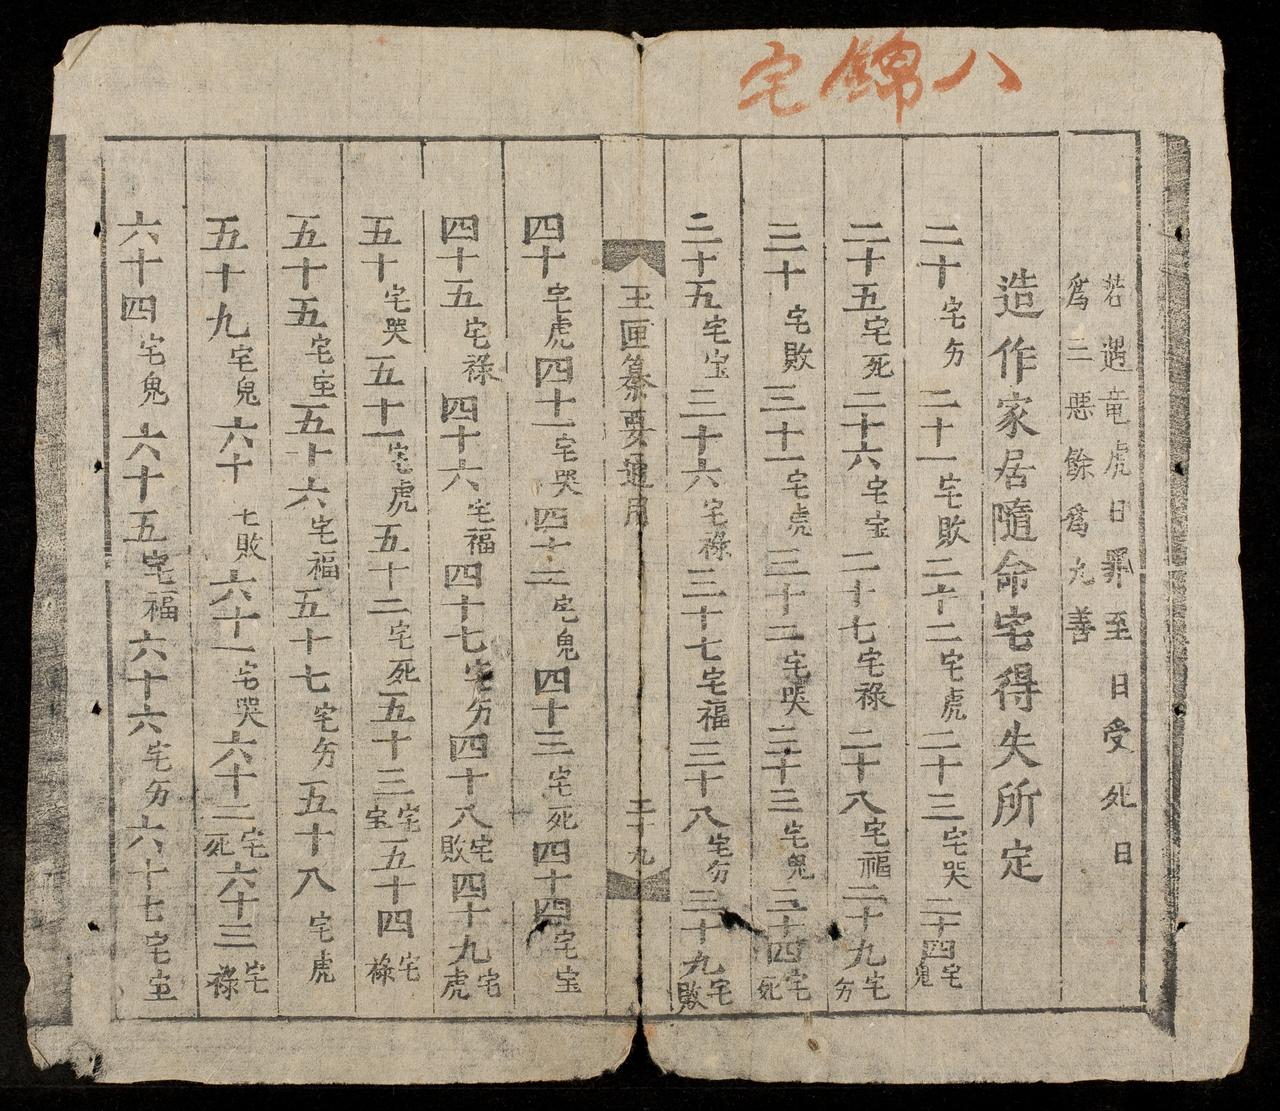 八錦宅
若遇竜虎日罪至日受死日
為三惡餘為九善
造作家居隨命宅得失所定
二十宅分二十一宅敗二十二宅虎二十三宅哭二十四宅鬼
二十五宅死二十六宅宝二十七宅祿二十八宅福二十九宅分
三十宅敗三十一宅虎三十二宅哭三十三宅鬼三十四宅死
三十五宅宝三十六宅祿三十七宅福三十八宅分三十九宅敗
玉匣纂要通用
二十九
四十宅虎四十一宅哭四十二宅鬼四十三宅死四十四宅宝
四十五宅祿四十六宅福四十七宅分四十八宅敗四十九宅虎
五十宅哭五十一宅虎五十二宅死五十三宅宝五十四宅祿
五十五宅宝五十六宅福五十七宅分五十八宅虎
五十九宅鬼六十七敗六十一宅哭六十二宅死六十三宅祿
六十四宅鬼六十五宅福六十六宅分六十七宅宝